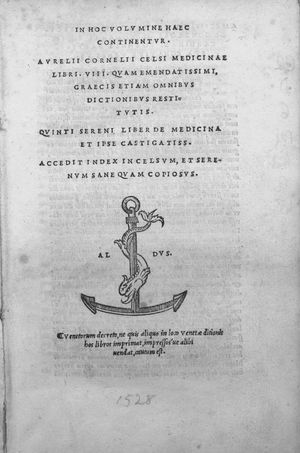 IN HOC VOLVMINE HAEC
CONTINENTVR.
AVRELII CORNELII CELSI MEDICINAE
LIBRI. VIII. QVAM EMENDATISSIMI,
GRAECIS ETIAM OMNIBVS
DICTIONIBVS RESTI-
TVTIS.
QVINTI SERENI LIBER DE MEDICINA
ET IPSE CASTIGATISS.
ACCEDIT INDEX IN CELSVM, ET SERE-
NVM SANE QVAM COPIOSVS.
AL DVS.
Venetorum decreto, ne quis aliquo in loco Venetae ditionis
hos libros imprimat, impressos'ue alibi
uendat, cautum est.
1528